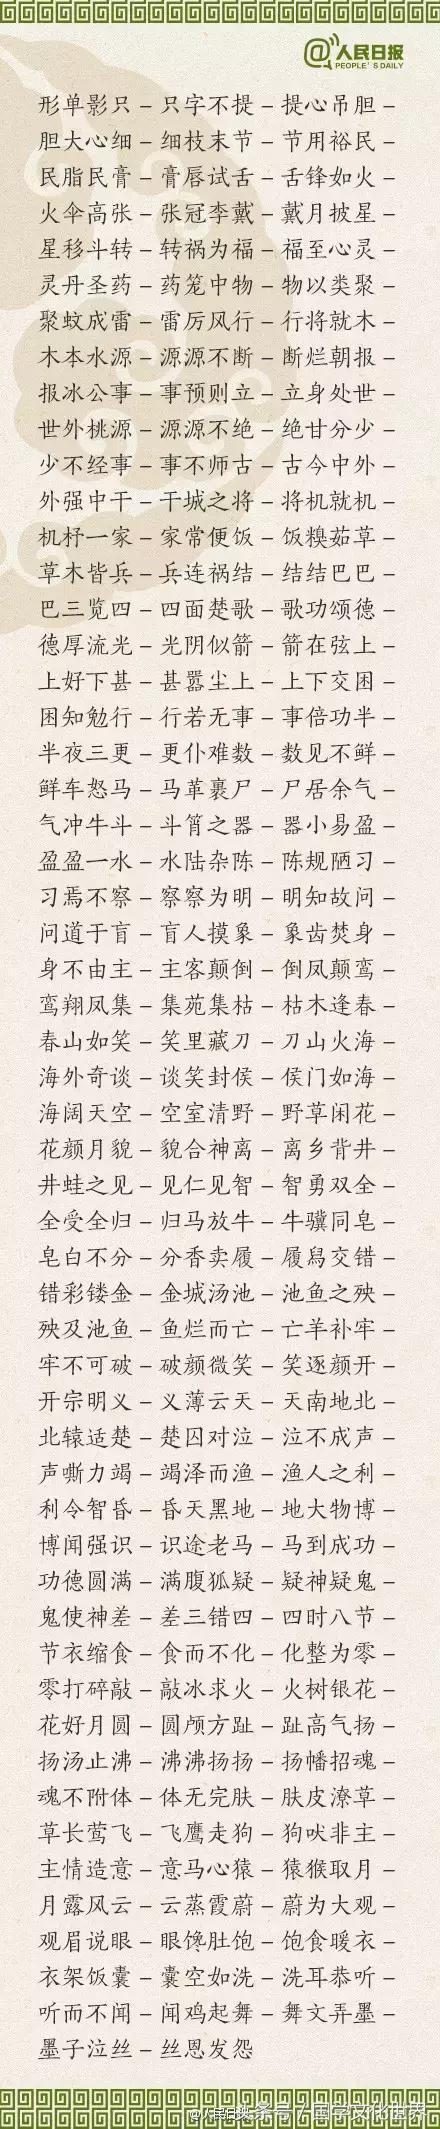 @人民日报
PEOPLE'S DAILY
形单影只 – 只字不提 – 提心吊胆 –
胆大心细 – 细枝末节 – 节用裕民 –
民脂民膏 – 膏唇试舌 – 舌锋如火 –
火伞高张 – 张冠李戴 – 戴月披星 –
星移斗转 – 转祸为福 – 福至心灵 –
灵丹圣药 – 药笼中物 – 物以类聚 –
聚蚊成雷 – 雷厉风行 – 行将就木 –
木本水源 – 源源不断 – 断烂朝报 –
报冰公事 – 事预则立 – 立身处世 –
世外桃源 – 源源不绝 – 绝甘分少 –
少不经事 – 事不师古 – 古今中外 –
外强中干 – 干城之将 – 将机就机 –
机杼一家 – 家常便饭 – 饭糗茹草 –
草木皆兵 – 兵连祸结 – 结结巴巴 –
巴三览四 – 四面楚歌 – 歌功颂德 –
德厚流光 – 光阴似箭 – 箭在弦上 –
上好下甚 – 甚嚣尘上 – 上下交困 –
困知勉行 – 行若无事 – 事倍功半 –
半夜三更 – 更仆难数 – 数见不鲜 –
鲜车怒马 – 马革裹尸 – 尸居余气 –
气冲牛斗 – 斗筲之器 – 器小易盈 –
盈盈一水 – 水陆杂陈 – 陈规陋习 –
习焉不察 – 察察为明 – 明知故问 –
问道于盲 – 盲人摸象 – 象齿焚身 –
身不由主 – 主客颠倒 – 倒凤颠鸾 –
鸾翔凤集 – 集苑集枯 – 枯木逢春 –
春山如笑 – 笑里藏刀 – 刀山火海 –
海外奇谈 – 谈笑封侯 – 侯门如海 –
海阔天空 – 空室清野 – 野草闲花 –
花颜月貌 – 貌合神离 – 离乡背井 –
井蛙之见 – 见仁见智 – 智勇双全 –
全受全归 – 归马放牛 – 牛骥同皂 –
皂白不分 – 分香卖履 – 履舄交错 –
错彩镂金 – 金城汤池 – 池鱼之殃 –
殃及池鱼 – 鱼烂而亡 – 亡羊补牢 –
牢不可破 – 破颜微笑 – 笑逐颜开 –
开宗明义 – 义薄云天 – 天南地北 –
北辕适楚 – 楚囚对泣 – 泣不成声 –
声嘶力竭 – 竭泽而渔 – 渔人之利 –
利令智昏 – 昏天黑地 – 地大物博 –
博闻强识 – 识途老马 – 马到成功 –
功德圆满 – 满腹狐疑 – 疑神疑鬼 –
鬼使神差 – 差三错四 – 四时八节 –
节衣缩食 – 食而不化 – 化整为零 –
零打碎敲 – 敲冰求火 – 火树银花 –
花好月圆 – 圆颅方趾 – 趾高气扬 –
扬汤止沸 – 沸沸扬扬 – 扬幡招魂 –
魂不附体 – 体无完肤 – 肤皮潦草 –
草长莺飞 – 飞鹰走狗 – 狗吠非主 –
主情造意 – 意马心猿 – 猿猴取月 –
月露风云 – 云蒸霞蔚 – 蔚为大观 –
观眉说眼 – 眼馋肚饱 – 饱食暖衣 –
衣架饭囊 – 囊空如洗 – 洗耳恭听 –
听而不闻 – 闻鸡起舞 – 舞文弄墨 –
墨子泣丝 – 丝恩发怨
@人民日报
头条号 / 国学文化世界